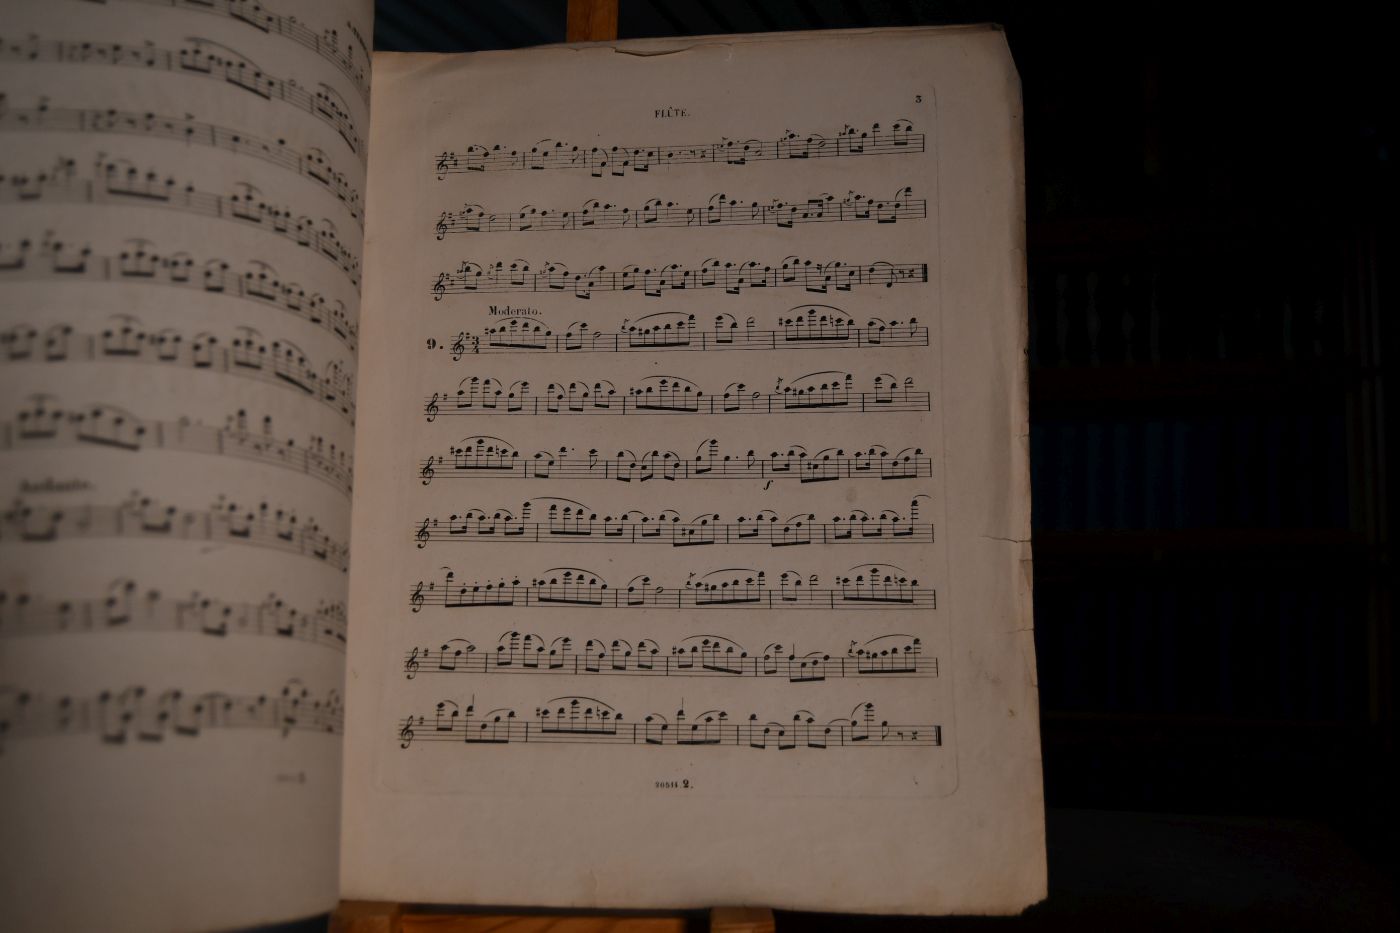 FLÛTE.
3
Moderato.
9.
3
4
f
Andante.
20511 2.